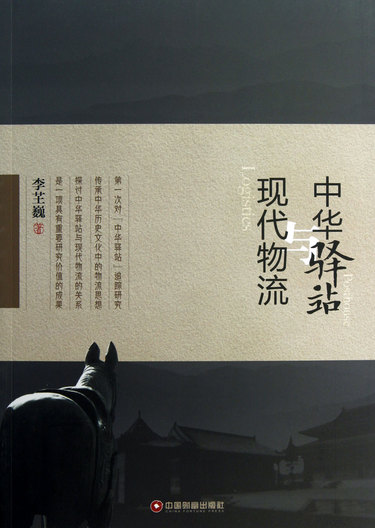 中华驿站
与
现代物流
Logistics
第一次对“中华驿站”追踪研究
传承中华历史文化中的物流思想
探讨中华驿站与现代物流的关系
是一项具有重要研究价值的成果
李芏巍 著
中国财富出版社
CHINA FORTUNE PRESS